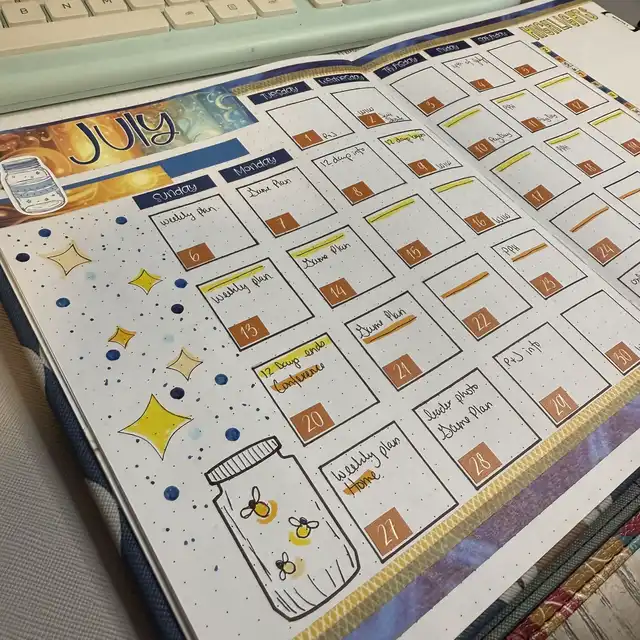 JULY
HIGHLIGHTS
Sunday
Monday
Tuesday
Wednesday
Thursday
Friday
Saturday
1
P+J
2
3
4
5
Weekly plan
6
Game Plan
7
12 days info
8
9
10
12
Weekly plan
13
Game Plan
14
15
16
17
12 Days ends
Conference
20
Game Plan
21
22
PPH
23
24
Weekly plan
Home
27
leader photo
Game Plan
28
P+J info
29
30